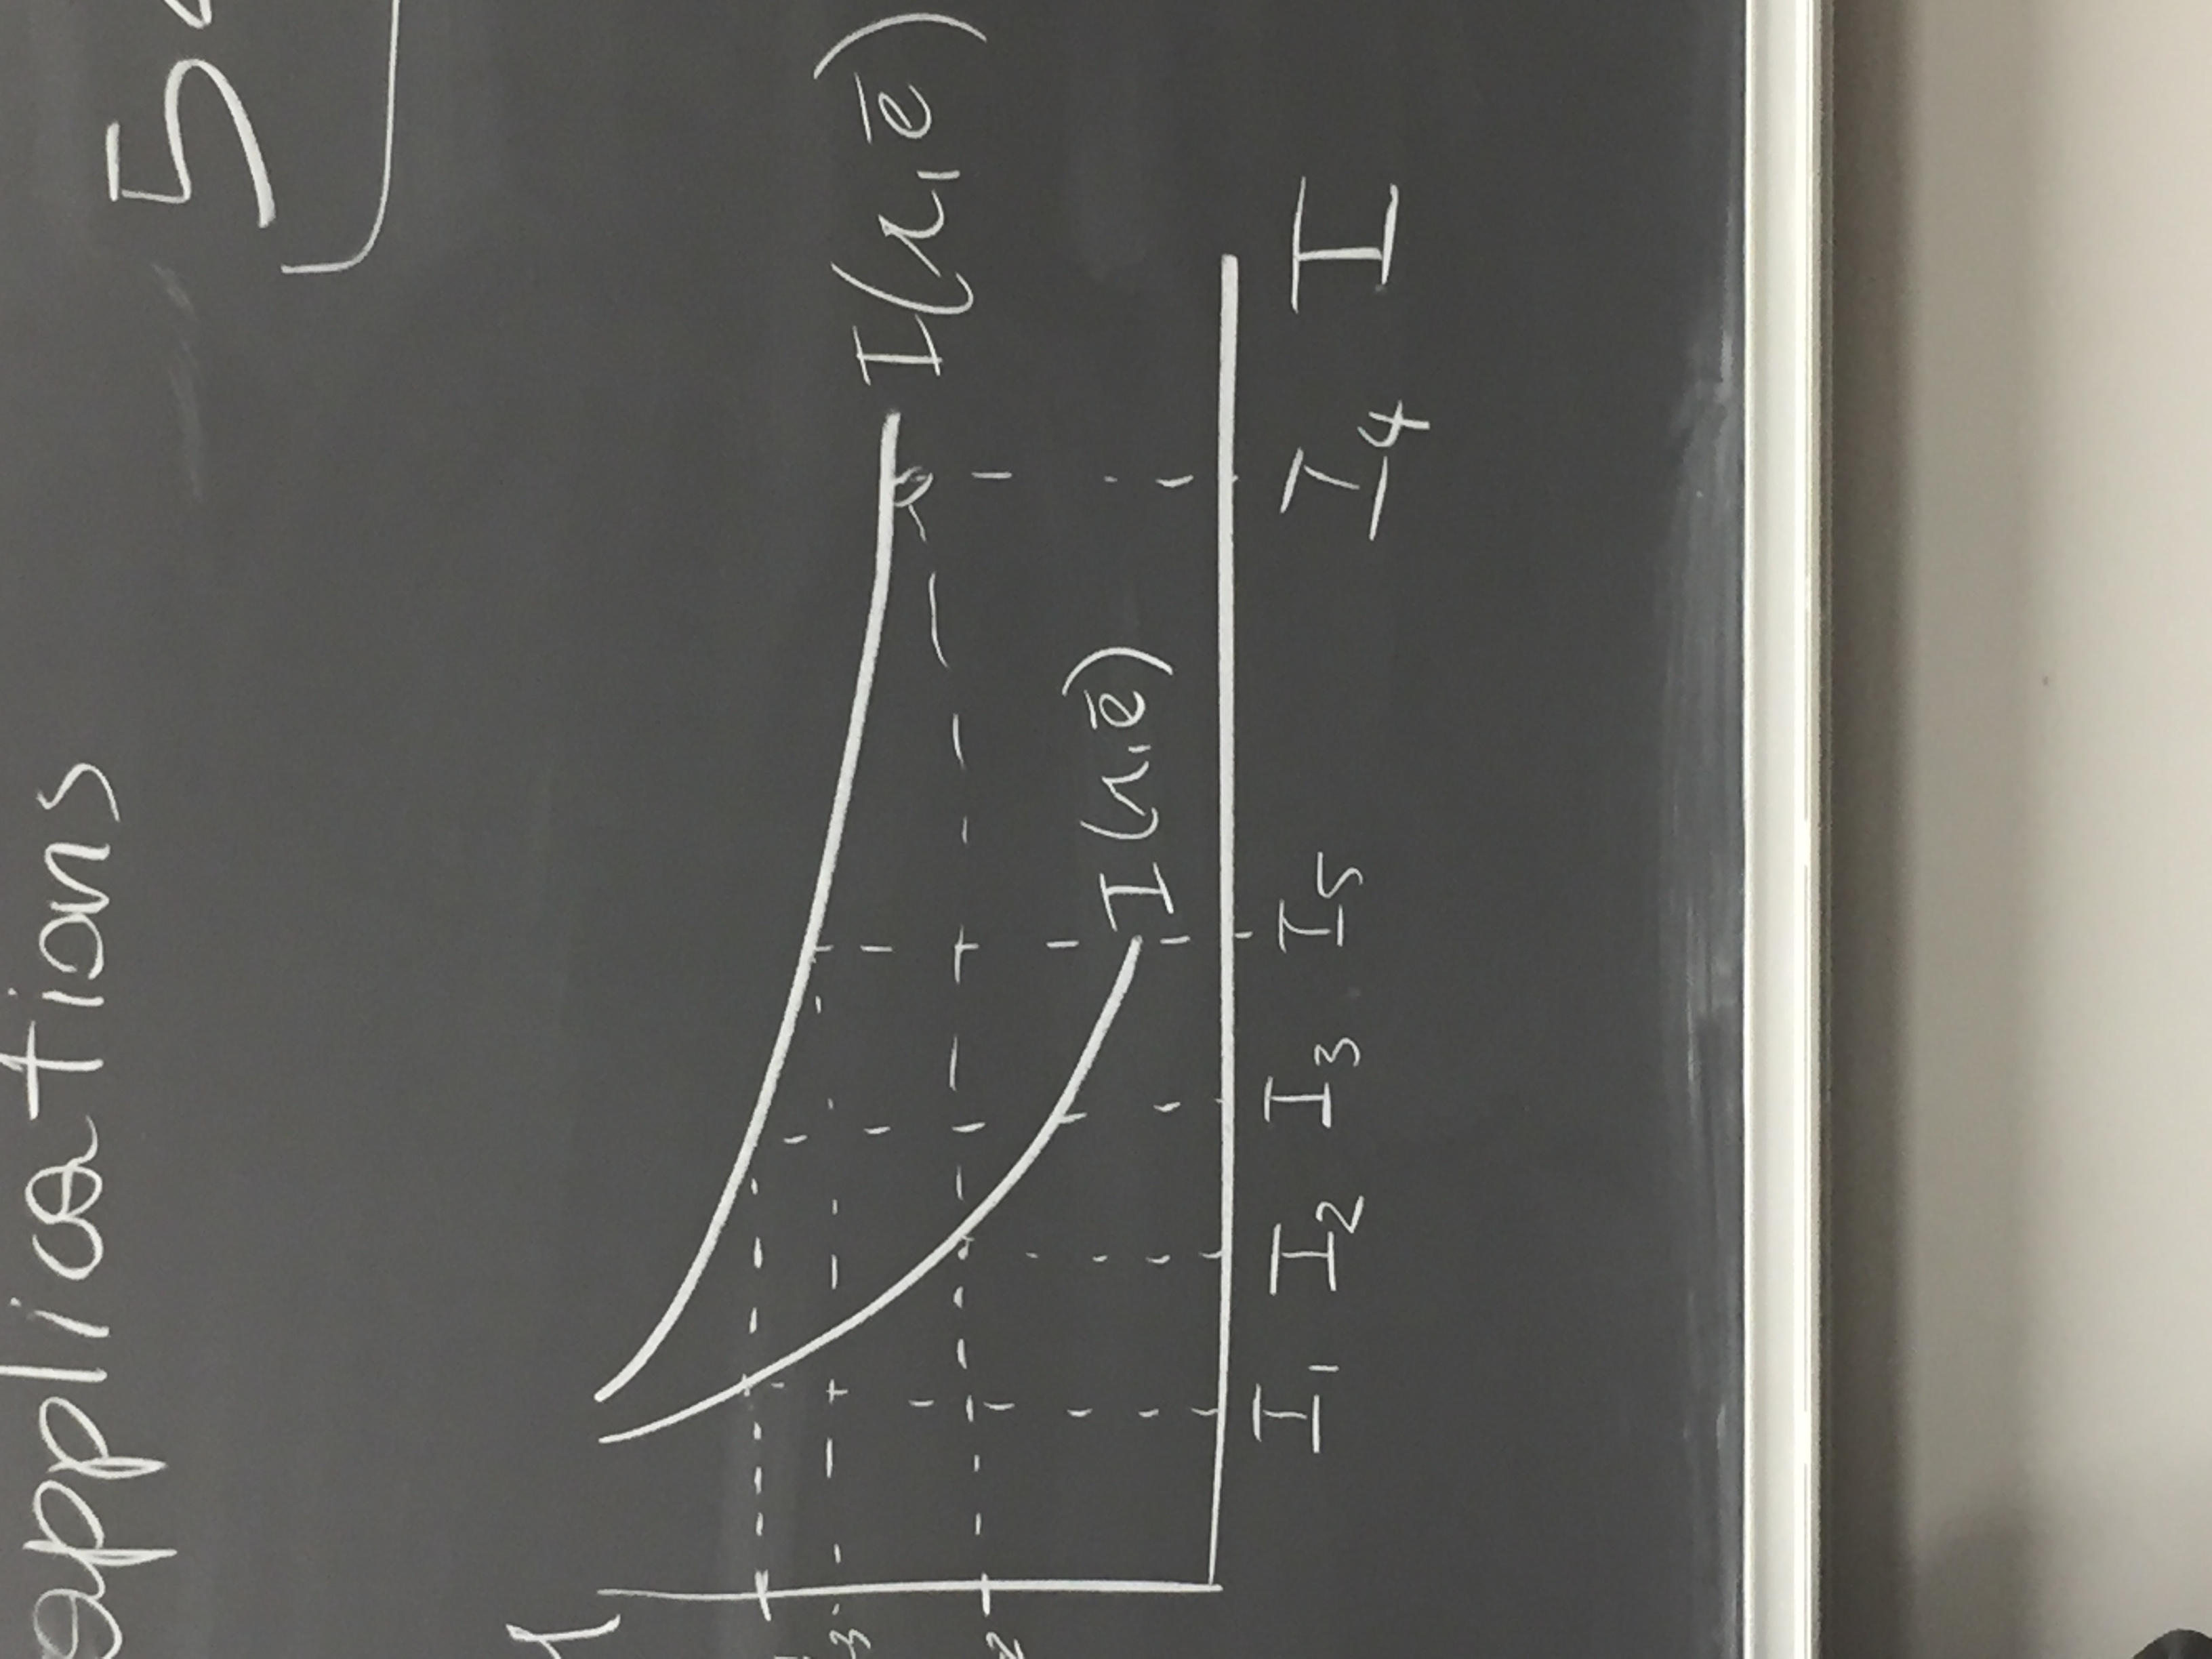 applications
5
r
3
2
I(r,ē)
I(r,ē)
I₁ I₂ I₃ I₅ I₄ I